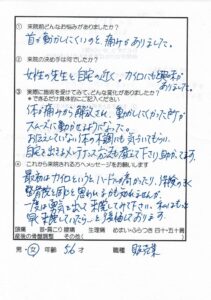 ① 来院前どんなお悩みがありましたか?
首が動かしにくいのと、痛みがありました。
② 来院の決め手は何でしたか?
女性の先生も自宅の近く。カイロにも興味が
ありました。
③ 実際に施術を受けてみて、どんな変化がありましたか?
*できるだけ具体的にご記入ください
体が痛みから解放され、動かしにくかった所が
スムーズに動かせるようになった。
お伝えしていない体の不調にも気づいてもらう。
自宅で出来るメンテナンス方法も教えて下さり助かってます。
④ これから来院される方へメッセージをお願いします
最初はカイロというとハードルが高かったり、保険の水
整骨院と同じと思われるかも知れませんが、
一度は勇気を出して来院してみて下さい。私はもっと
早く来院していたら…と後悔しております。
頭痛 肩・肩こり 腰痛 生理痛 めまい・ふらつき 四十・五十肩
産後の骨盤調整 その他
男・女 年齢 56才 職種 販売業